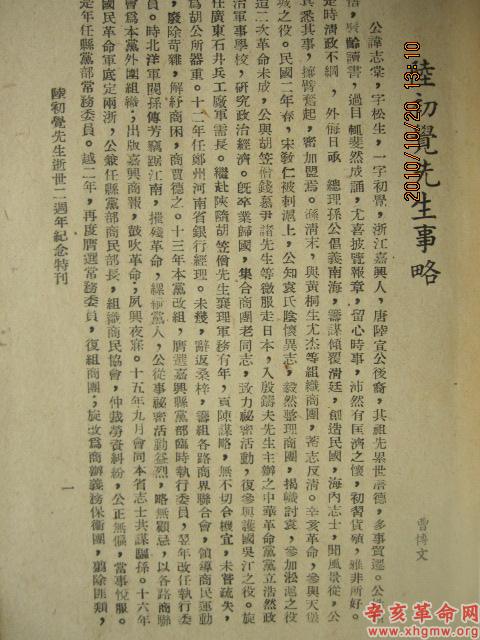 陸初覺先生事略
曹博文
公諱志棠，字松生，一字初覺，浙江嘉興人，唐陸宣公後裔，其祖先累世潛德，多事貿遷。公
悟，髫齡讀書，過目輒斐然成誦，尤喜披覽報章，留心時事，沛然有匡濟之懷，初習貨殖，雅非所好。
是時清政不綱，外侮日亟，總理孫公倡義南海，籌謀傾覆清廷，創造民國，海內志士，聞風景從，公
其悉其事，攘臂奮起，密加盟焉。孫清末，與黃桐生尤杰等組織商團，蓄志反清。辛亥革命，參與天堡
城之役。民國二年春，宋教仁被刺滬上，公知袁氏陰懷異志，毅然整理商團，揭幟討袁，參加淞滬之役
迨二次革命未成，公與胡笠僧錢慕尹諸先生等微服走日本，入殷鑄夫先生主辦之中華革命黨黨立浩然政
治軍事學校，研究政治經濟。旣卒業歸國，集合商團老同志，致力祕密活動，復參與護國吳江之役。旋
任廣東石井兵工廠軍需長。繼赴陝隨胡笠僧先生襄理軍務有年，頁陳謀略，無不切合機宜，未嘗疏失，
爲胡公所器重。十二年任鄭州河南省銀行經理。未幾，辭返桑梓，籌組各路商界聯合會，領導商民運動
，廢除苛雜，解紓商困，商賈德之。十三年本黨改組，膺選嘉興縣黨部臨時執行委員，翌年改任執行委
員。時北洋軍閥孫傳芳竊踞江南，摧殘革命，緹騎黨人，公從事祕密活動益烈，略無顧忌，以各路商聯
會爲本黨外圍組織；出版嘉興商報，鼓吹革命；夙興夜寐。十五年九月會同本省志士共謀驅孫。十六年
國民革命軍底定兩浙，公兼任縣黨部商民部長，組織商民協會，仲裁勞資糾紛，公正無偏，當事悅服。
是年任縣黨部常務委員。越二年，再度膺選常務委員，復組商團；旋改爲商辦義務保衞團，翦除匪類，
陸初覺先生逝世二週年紀念特刊
一
2010/10/20 13:10
辛亥革命网
www.xhgmw.org